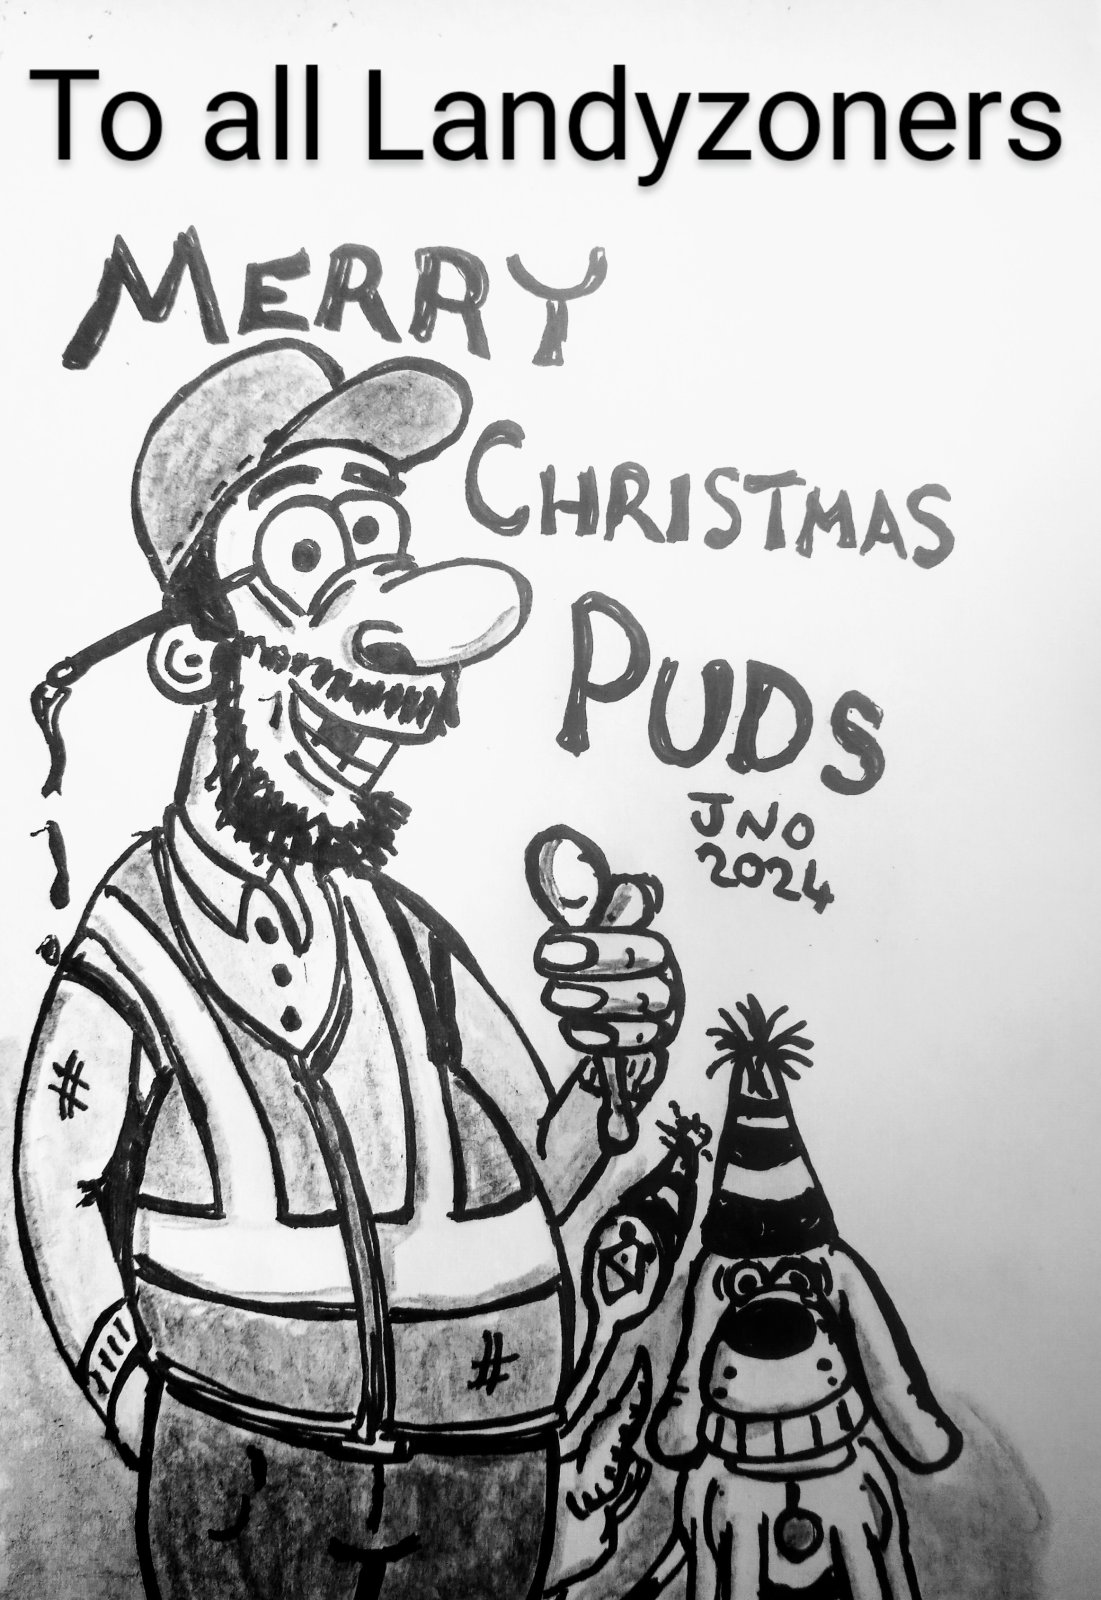 To all Landyzoners
MERRY
CHRISTMAS
PUDS
JNO
2024